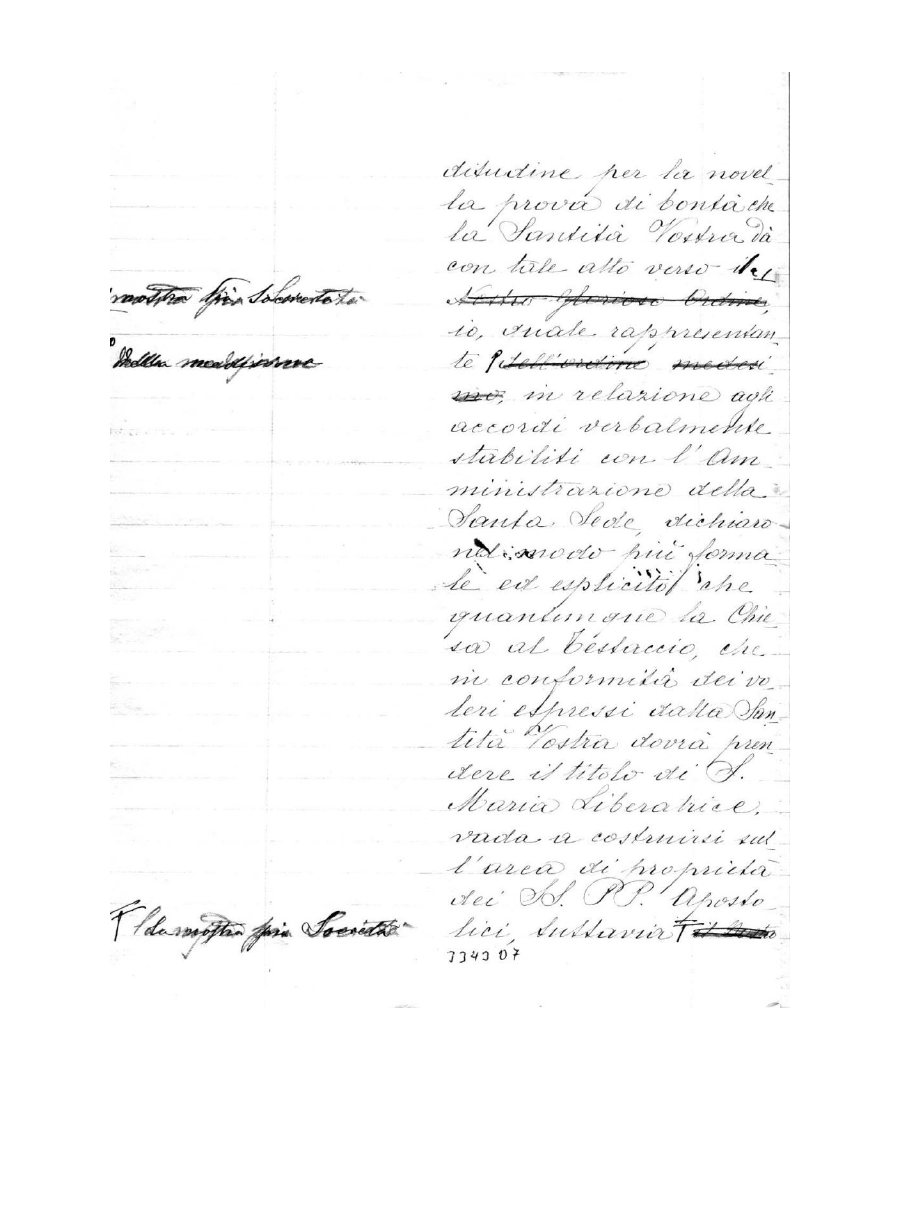 ditudine per la novel
la prova di bontà che
la Santità Vostra dà
con tale atto verso
nostra pia Società
Nostro Glorioso Ordine,
io, quale rappresentan
te dell'ordine medesi
della medesima
mo, in relazione agli
accordi verbalmente
stabiliti con l'Am
ministrazione della
Santa Sede, dichiaro
nel modo più forma
le ed esplicito che
quantunque la Chie
sa al Testaccio, che
in conformità dei vo
leri espressi dalla San
tità Vostra dovrà pren
dere il titolo di S.
Maria Liberatrice,
vada a costruirsi sul
l'area di proprietà
dei SS. PP. Aposto
lici, tuttavia
la nostra pia Società
3343 07